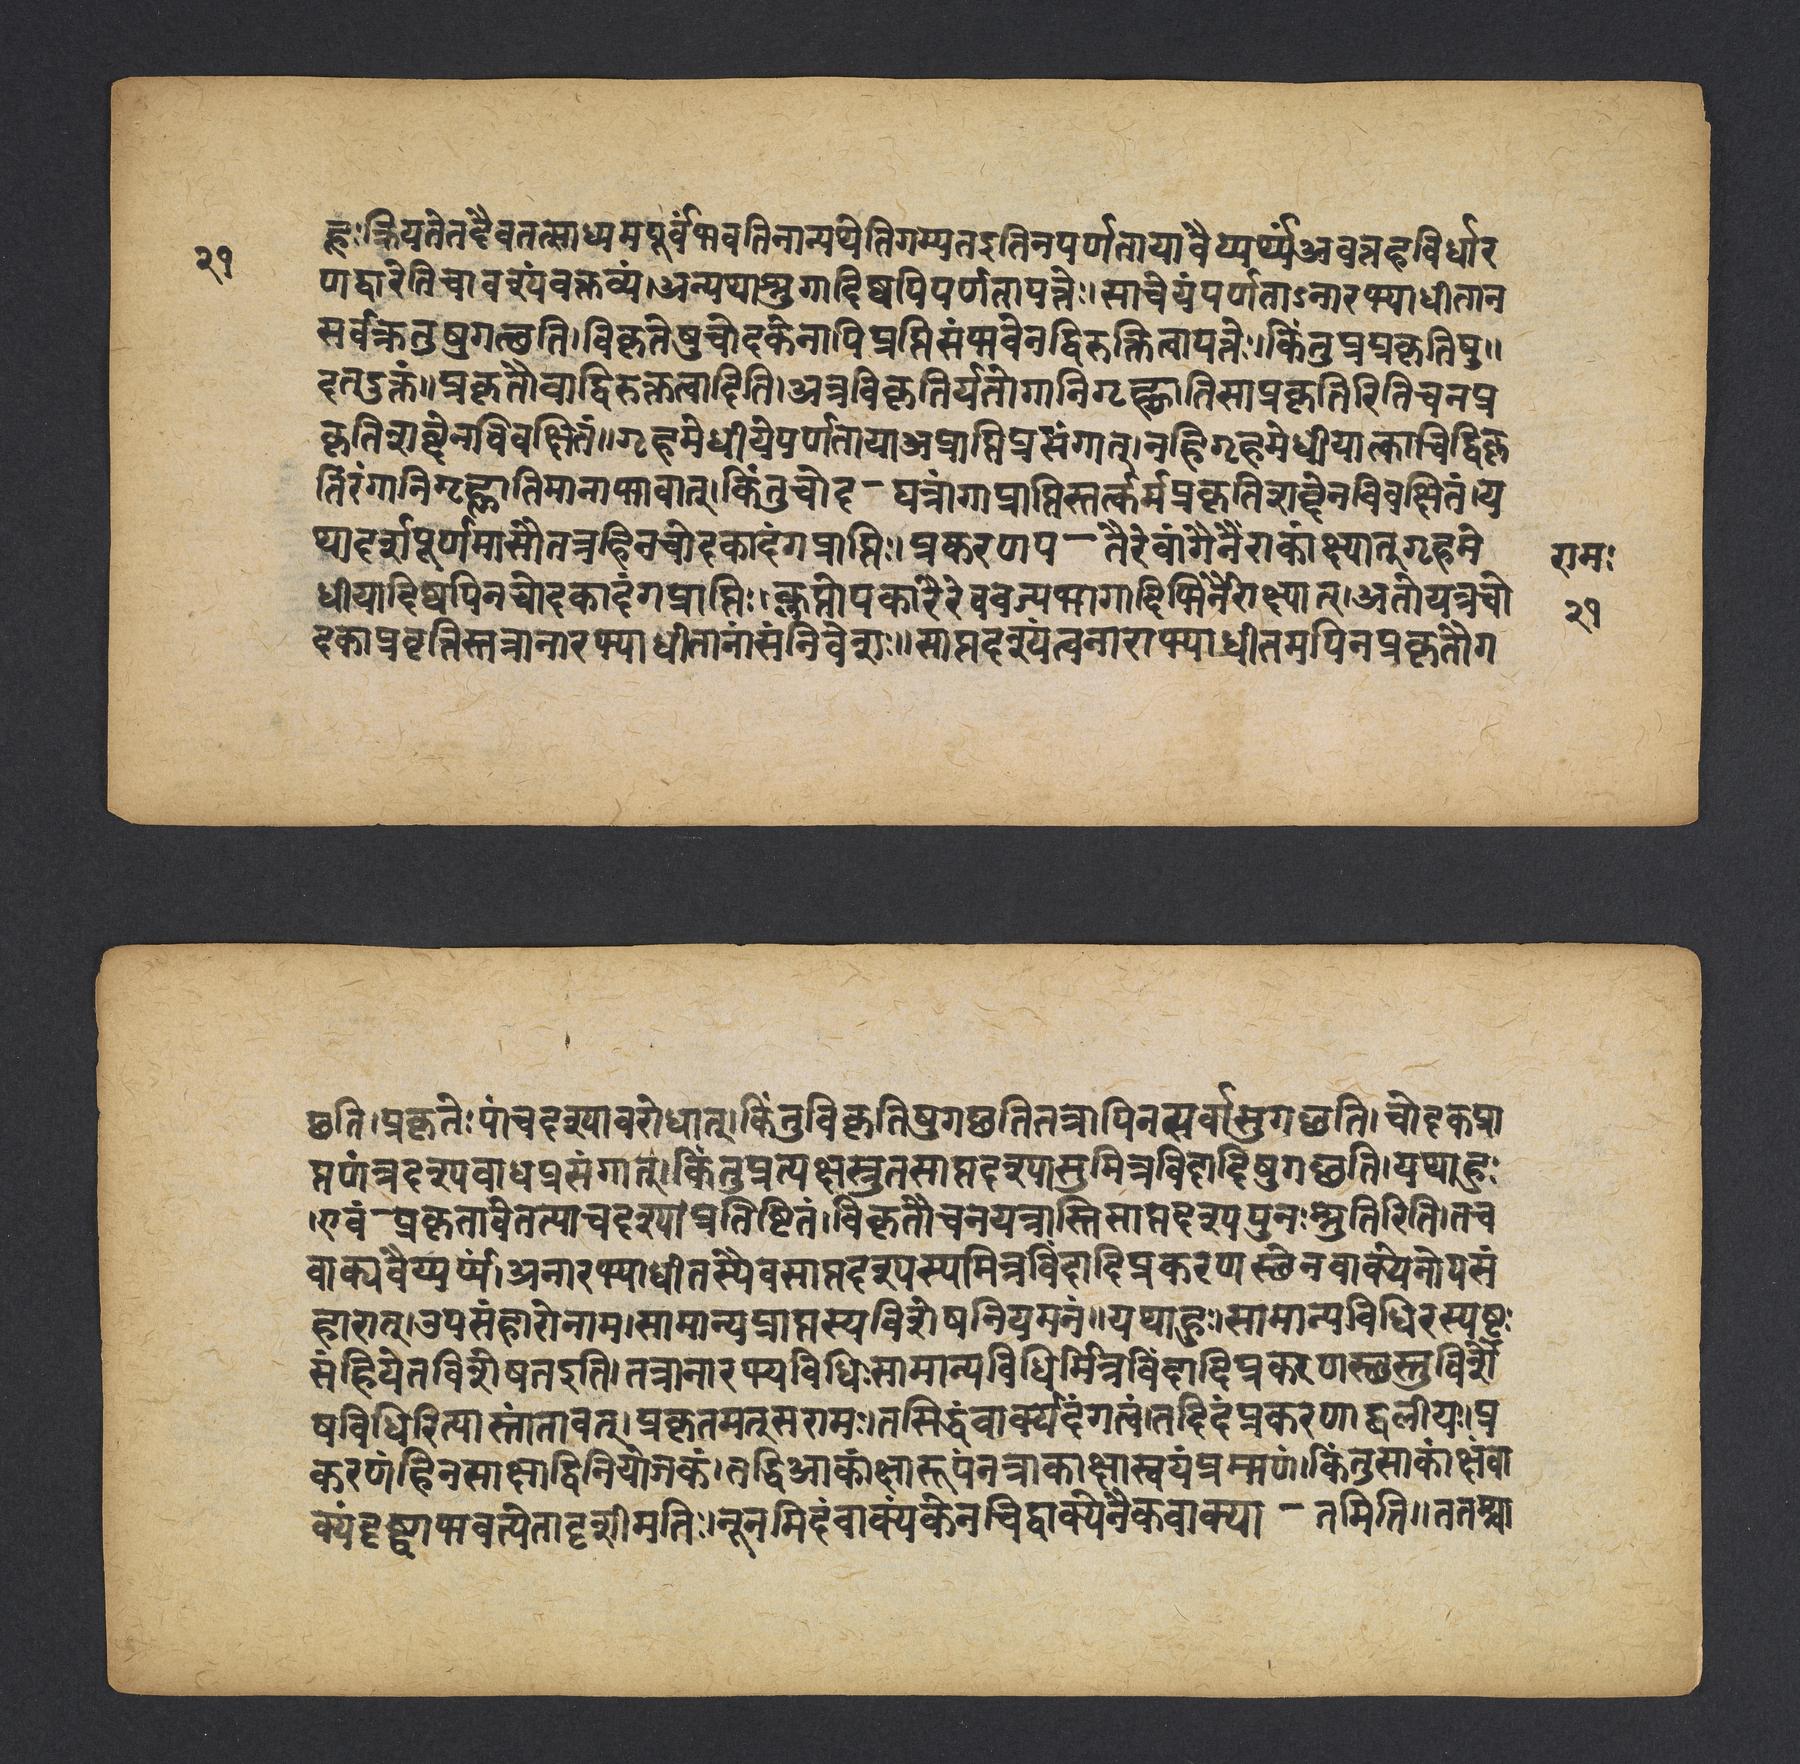 २१
हूः क्रियतेतदैवतत्साध्यमपूर्वंभवतिनान्यथेतिगम्यतइतिनपर्णतायावैय्यर्थ्यंअवत्तहविर्धार
णद्वारेतिचावश्यंवक्तव्यं।अन्यथास्त्रुगादिष्वपिपर्णतापत्तेः।साचेयंपर्णताऽनारभ्याधीतान
सर्वक्रतुषुगछति।विकृतेषुचोदकेनापिप्राप्तिसंभवेनद्विरुक्तित्वापत्तेः।किंतुप्रप्रकृतिषु॥
दतदुक्तं॥प्रकृतौवाद्विरुक्तत्वादिति।अत्रविकृतिर्यतोगानिगृह्णातिसाप्रकृतिरितिचनप्र
कृतिशब्देनविवक्षितं॥गृहमेधीयेपर्णतायाअप्राप्तिप्रसंगात्।नहिगृहमेधीयात्काचिद्विकृ
तिरंगानिगृह्णातिमानाभावात्।किंतुचोद-पत्रांगाप्राप्तिस्तत्कर्मप्रकृतिशब्देनविवक्षितं।य
थादर्शपूर्णमासौतत्रहिनचोदकादंगप्राप्तिः।प्रकरणप-तैरेवांगैर्नैराकांक्ष्यात्गृहमे
धीयादिष्वपिनचोदकादंगप्राप्तिः।कॢप्तोपकारैरेववज्यभागादिभिर्नैराक्ष्यात्।अतोयत्रचो
दकाप्रवृत्तिस्तत्रानारभ्याधीतानांसंनिवेशः॥साप्तदश्यंत्वनाराभ्याधीतमपिनप्रकृतौग
रामः
२१
छति।प्रकृतेःपांचदश्यावरोधात्।किंतुविकृतिषुगछतितत्रापिनत्सर्वासुगछति।चोदकप्रा
प्तपांत्रदश्यबाधप्रसंगात्।किंतुप्रत्यक्षस्त्रुतसाप्तदश्यासुमित्रविंदादिषुगछति।यथाहुः
।एवं-प्रकृतावेतत्पाचदश्यांप्रतिष्टितं।विकृतौचनयत्रास्तिसाप्तदश्यपुनःस्त्रुतिरिति।तच
वाक्यवैय्यर्थ्यं।अनारभ्याधीतस्यैवसाप्तदश्यस्यमित्रविंदादिप्रकरणस्छेनवाक्येनोपसं
हारात्।उपसंहारोनाम।सामान्यप्राप्तस्यविशेषनियमनं॥यथाहुः।सामान्यविधिरस्पष्टः
संह्रियेतविशेषतइति।तत्रानारभ्यविधिःसामान्यविधिर्मित्रविंदादिप्रकरणस्छस्तुविशे
षविधिरित्यास्तांतावत्।प्रकृतमतूसरामः।तसिद्धंवाक्यदंगत्वं।तदिदंप्रकरणाद्बलीयः।प्र
करणंहिनसाक्षाद्विनियोजकं।तद्धिआकांक्षारूपंनत्राकाक्षास्वयंप्रम्माणं।किंतुसाकांक्षंवा
क्यंदृष्ट्वाभवत्येतादृशीमतिः।नूनमिदंवाक्यंकेनचिद्वाक्येनैकवाक्या-तमिति॥ततश्चा